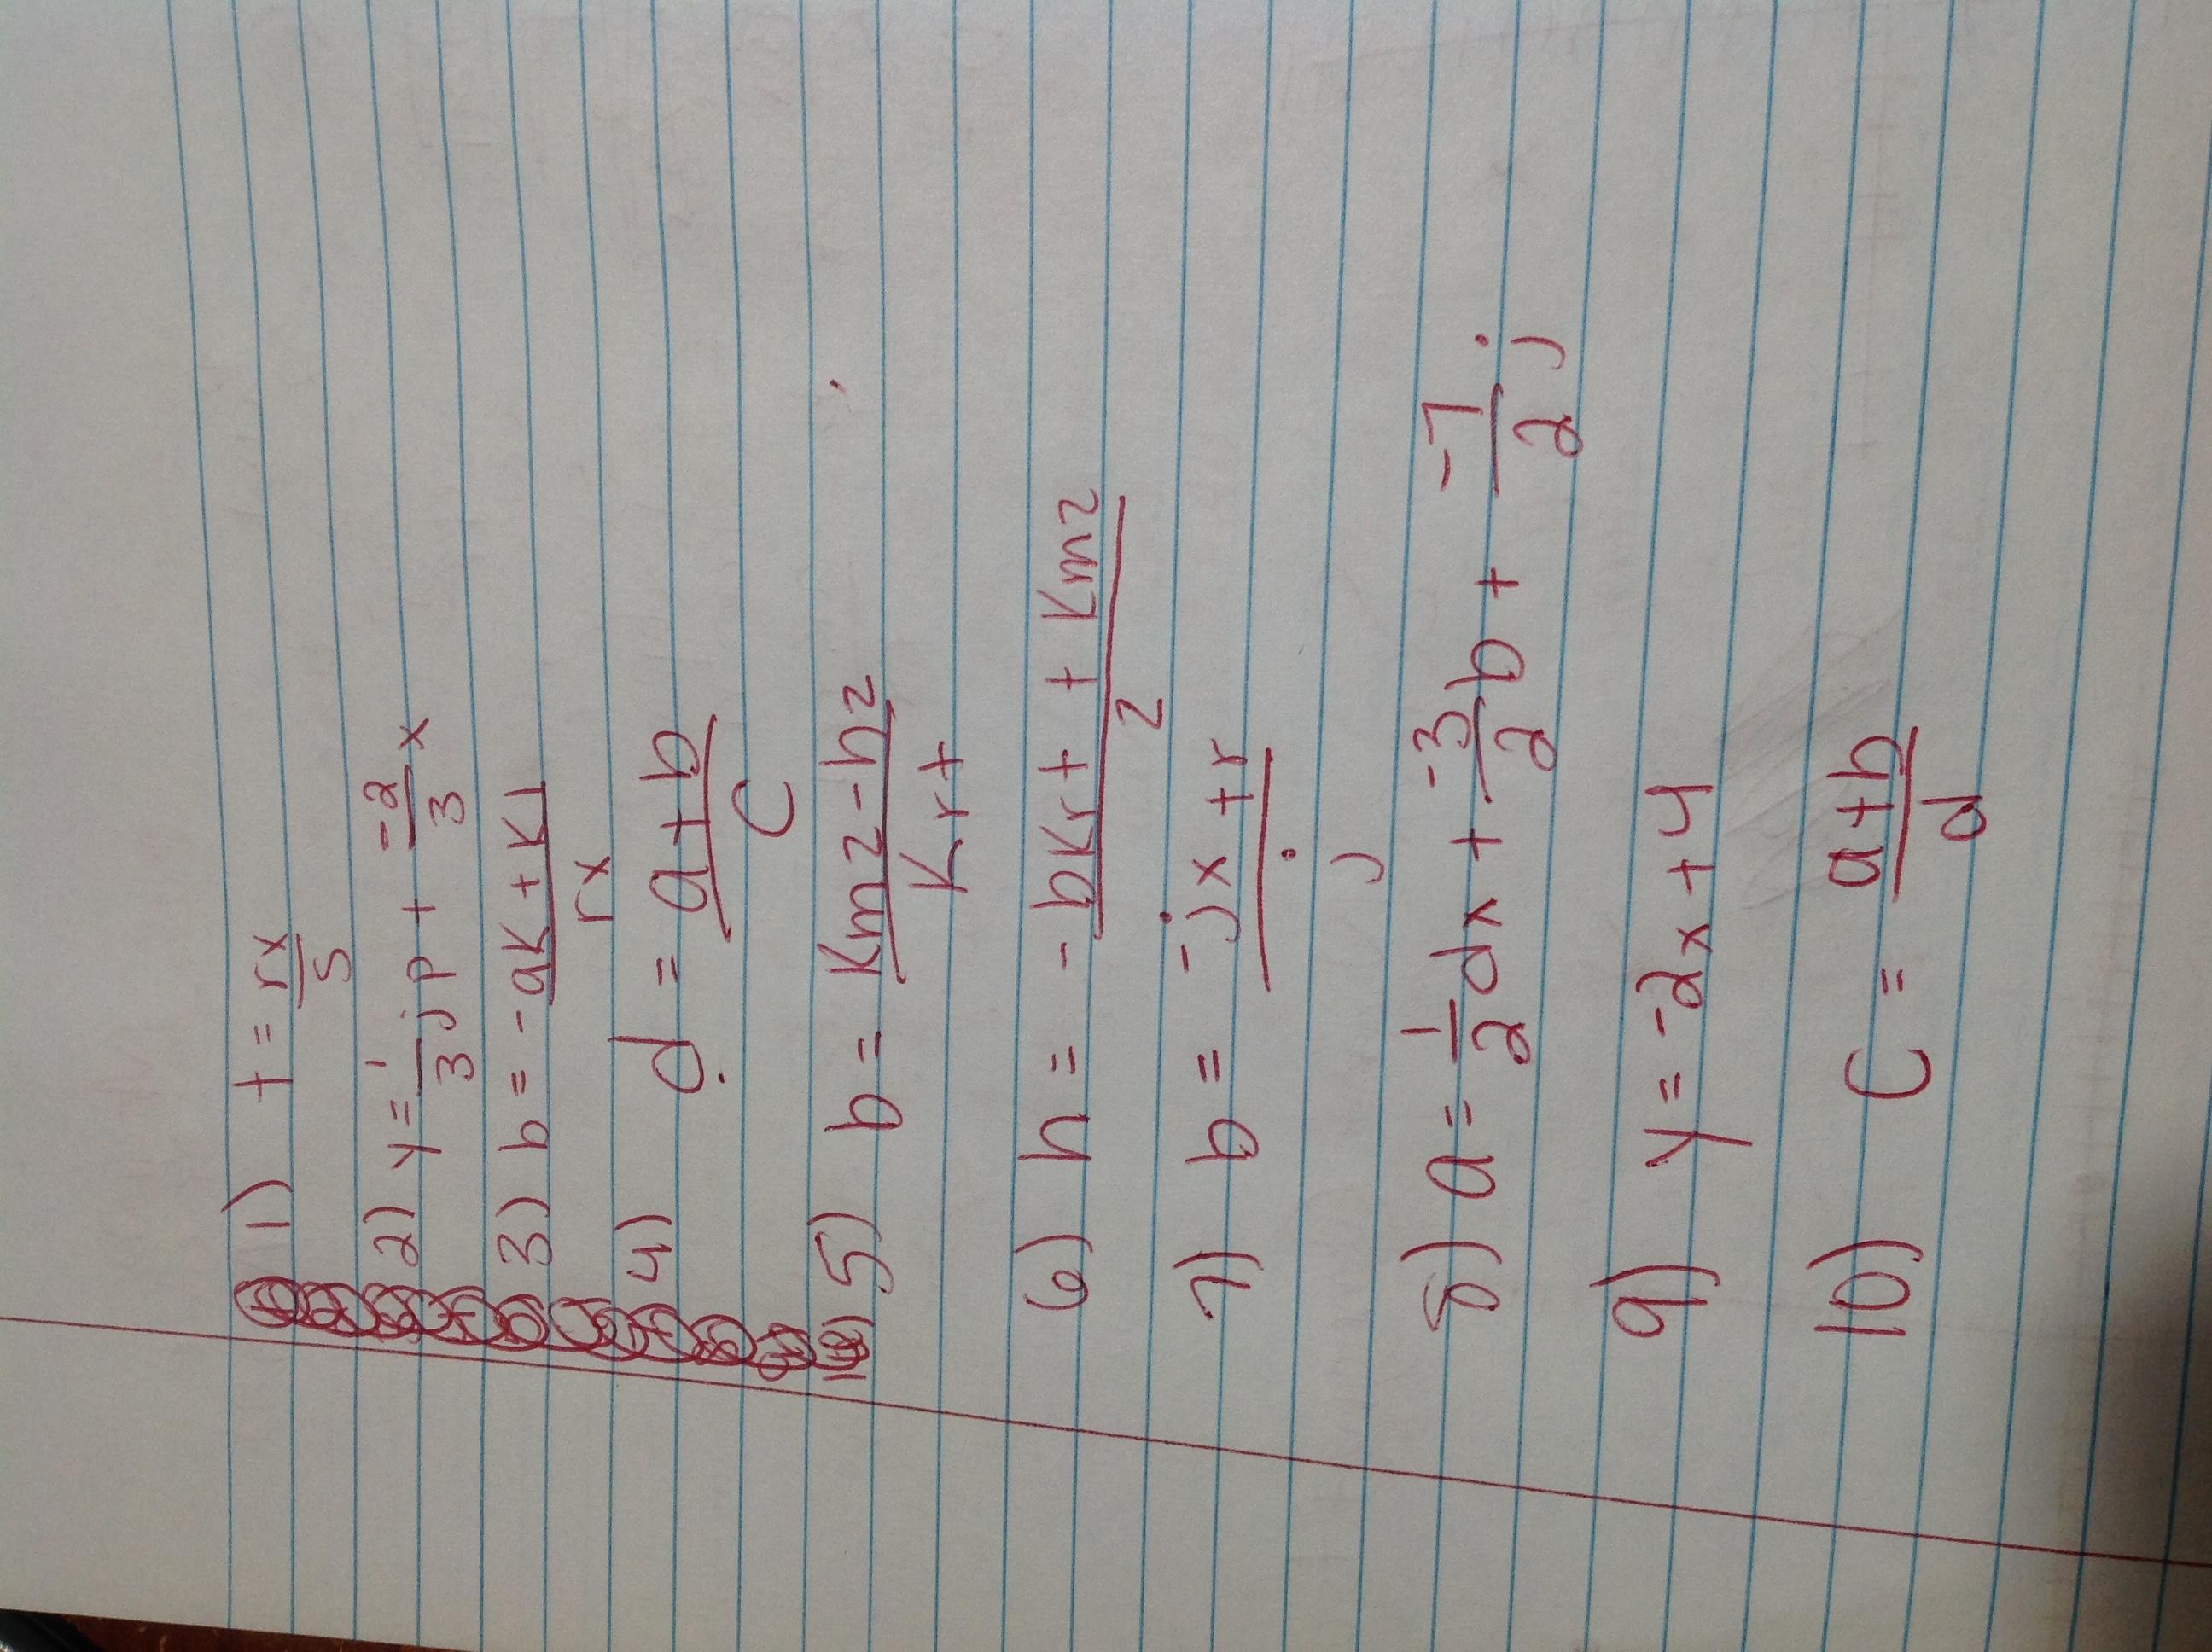 1) t = rx/5
2) y = 1/3 jp + -2/3 x
3) b = -ak + k1/rx
4) d = a+b/c
5) b = kmz - hz/krt
6) h = -bkrt + kmz/z
7) b = -jx + r/j
8) a = 1/2 dx + -3/2 b + -1/2 j
9) y = -2x + 4
10) c = a+b/d